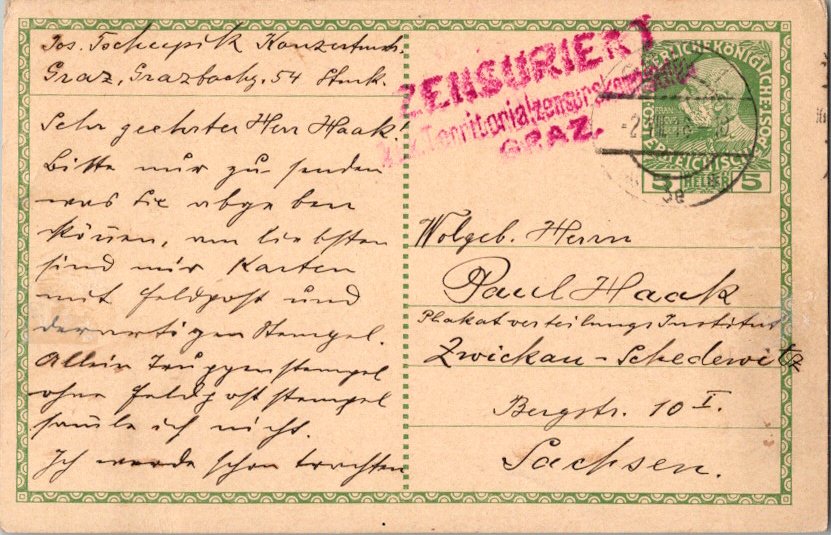 Jos. Tschepik Konzertm.
Graz, Grazbachg. 54 Stmk.
Sehr geehrter Herr Haak!
Bitte nur zu senden
was Sie abgeben
können, am liebsten
sind mir Karten
mit Feldpost und
derartigen Stempel.
Allein Truppenstempel
ohne Feldpoststempel
samle ich nicht.
Ich werde schon trachten
ZENSURIERT
K.u.k. Territorialzensurskommission
GRAZ.
5 HELLER 5
Wolgeb. Herrn
Paul Haak
Plakatverteilungs Institut
Zwickau-Schedewitz
Bergstr. 10 I.
Sachsen.